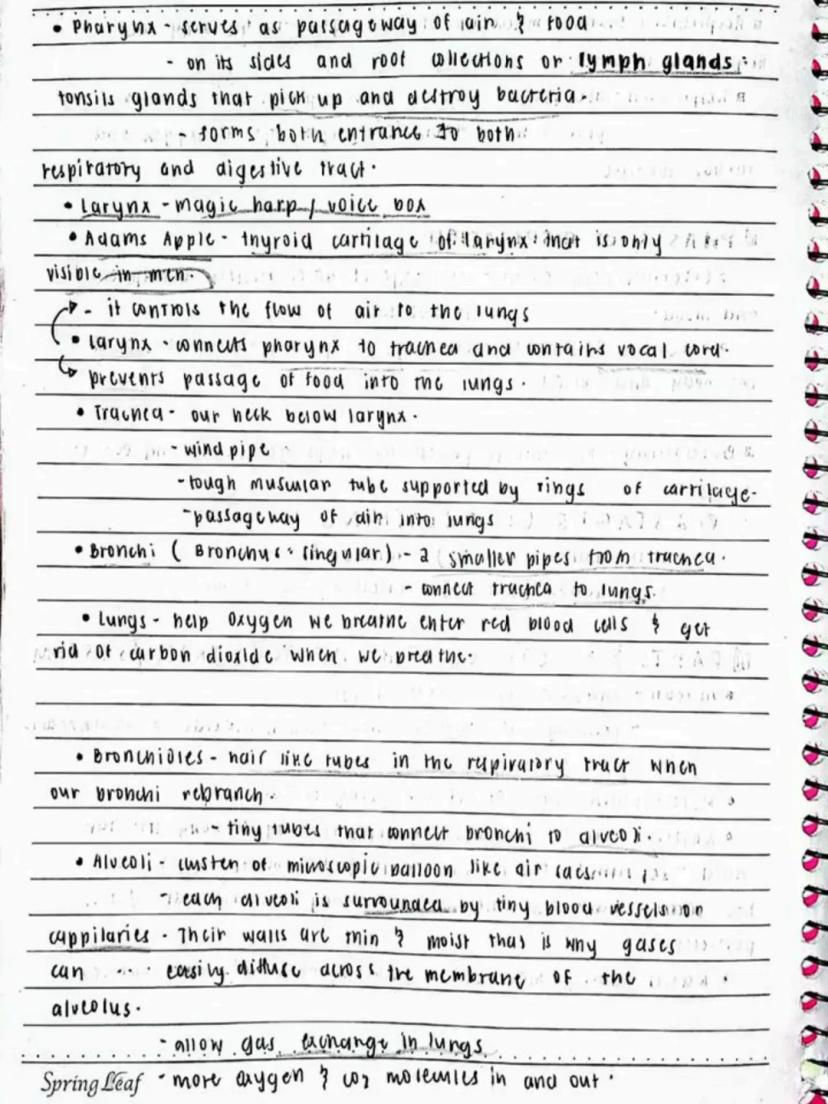 • Pharynx - serves as passageway of air & food
- on its sides and roof collections or lymph glands.
tonsils glands that pick up and destroy bacteria.
- forms both entrance to both
respiratory and digestive tract.
• Larynx - magic harp / voice box
• Adams Apple - thyroid cartilage of larynx that is only
visible in men.
- it controls the flow of air to the lungs
• larynx - connects pharynx to trachea and contains vocal cord.
prevents passage of food into the lungs.
• Trachea - our neck below larynx.
- wind pipe
- tough muscular tube supported by rings of cartilage.
- passageway of air into lungs
• Bronchi ( Bronchus : singular) - 2 smaller pipes from trachea.
- connect trachea to lungs.
• Lungs - help oxygen we breathe enter red blood cells & get
rid of carbon dioxide when we breathe.
• Bronchioles - hair like tubes in the respiratory tract when
our bronchi rebranch.
- tiny tubes that connect bronchi to alveoli.
• Alveoli - cluster of microscopic balloon like air sacs
- each alveoli is surrounded by tiny blood vessels on
cappilaries. Their walls are thin & moist that is why gases
can easily diffuse across the membrane of the
alveolus.
- allow gas exchange in lungs
Spring Leaf - more oxygen & co2 molecules in and out.